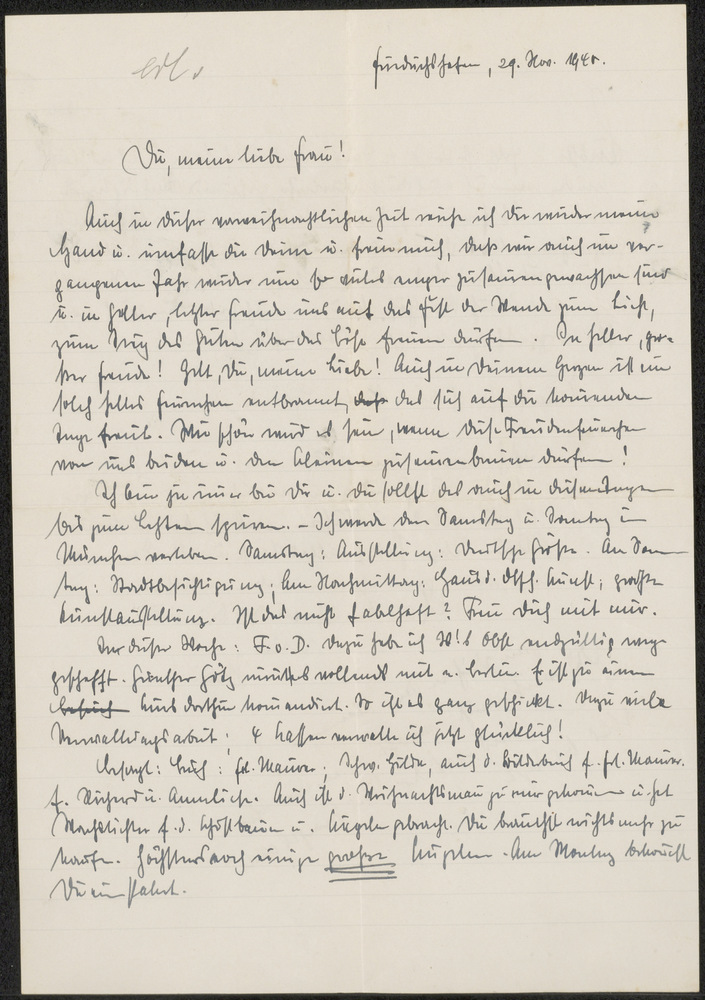 erl.
Friedrichshafen, 29. Nov. 1940.
Du, meine liebe Frau!
Auch in dieser vorweihnachtlichen Zeit reiche ich Dir wieder meine
Hand u. umfasse die Deine u. freue mich, daß wir auch im ver-
gangenen Jahr wieder um so vieles enger zusammengewachsen sind
u. in heller, lichter Freude uns auf das Fest der Wende zum Licht,
zum Sieg des Guten über das Böse freuen dürfen. In heller, gro-
ßer Freude! Gelt, Du, meine Liebe! Auch in Deinem Herzen ist ein
solch helles Fünkchen entbrannt, das sich auf die kommenden
Tage freut. Wie schön wird es sein, wenn diese Freudenfünkchen
von uns beiden u. den Kleinen zusammenbrennen dürfen!
Ich bin ja immer bei Dir u. Du sollst das auch in diesen Tagen
bis zum Letzten spüren. – Ich werde den Samstag u. Sonntag in
München verleben. Samstag: Ausstellung: Deutsche Größe. Am Sonn-
tag: Stadtbesichtigung; Am Nachmittag: Haus d. dtsch. Kunst; große
Kunstausstellung. Ist das nicht fabelhaft? Freu Dich mit mir.
In dieser Woche: F. o. D. dazu habe ich Obst endgültig weg-
geschafft. Günther Götz nimmt es vollends mit n. Berlin. Er ist ja einen
Kurs dorthin kommandiert. So ist es ganz geschickt. Dazu viele
Verwaltungsarbeit; 4 Kassen verwalte ich jetzt glücklich!
Besorgt: Buch: Frl. Maurer; Schw. Hilde, auch d. Bilderbuch f. Frl. Maurer.
f. Richard u. Annliese. Auch ist d. Weihnachtsmann zu mir gekommen u. hat
Wachslichter f. d. Christbaum u. Kugeln gebracht. Du brauchst nichts mehr zu
kaufen. Höchstens noch einige große Kugeln. Am Montag bekommst
Du ein Paket.